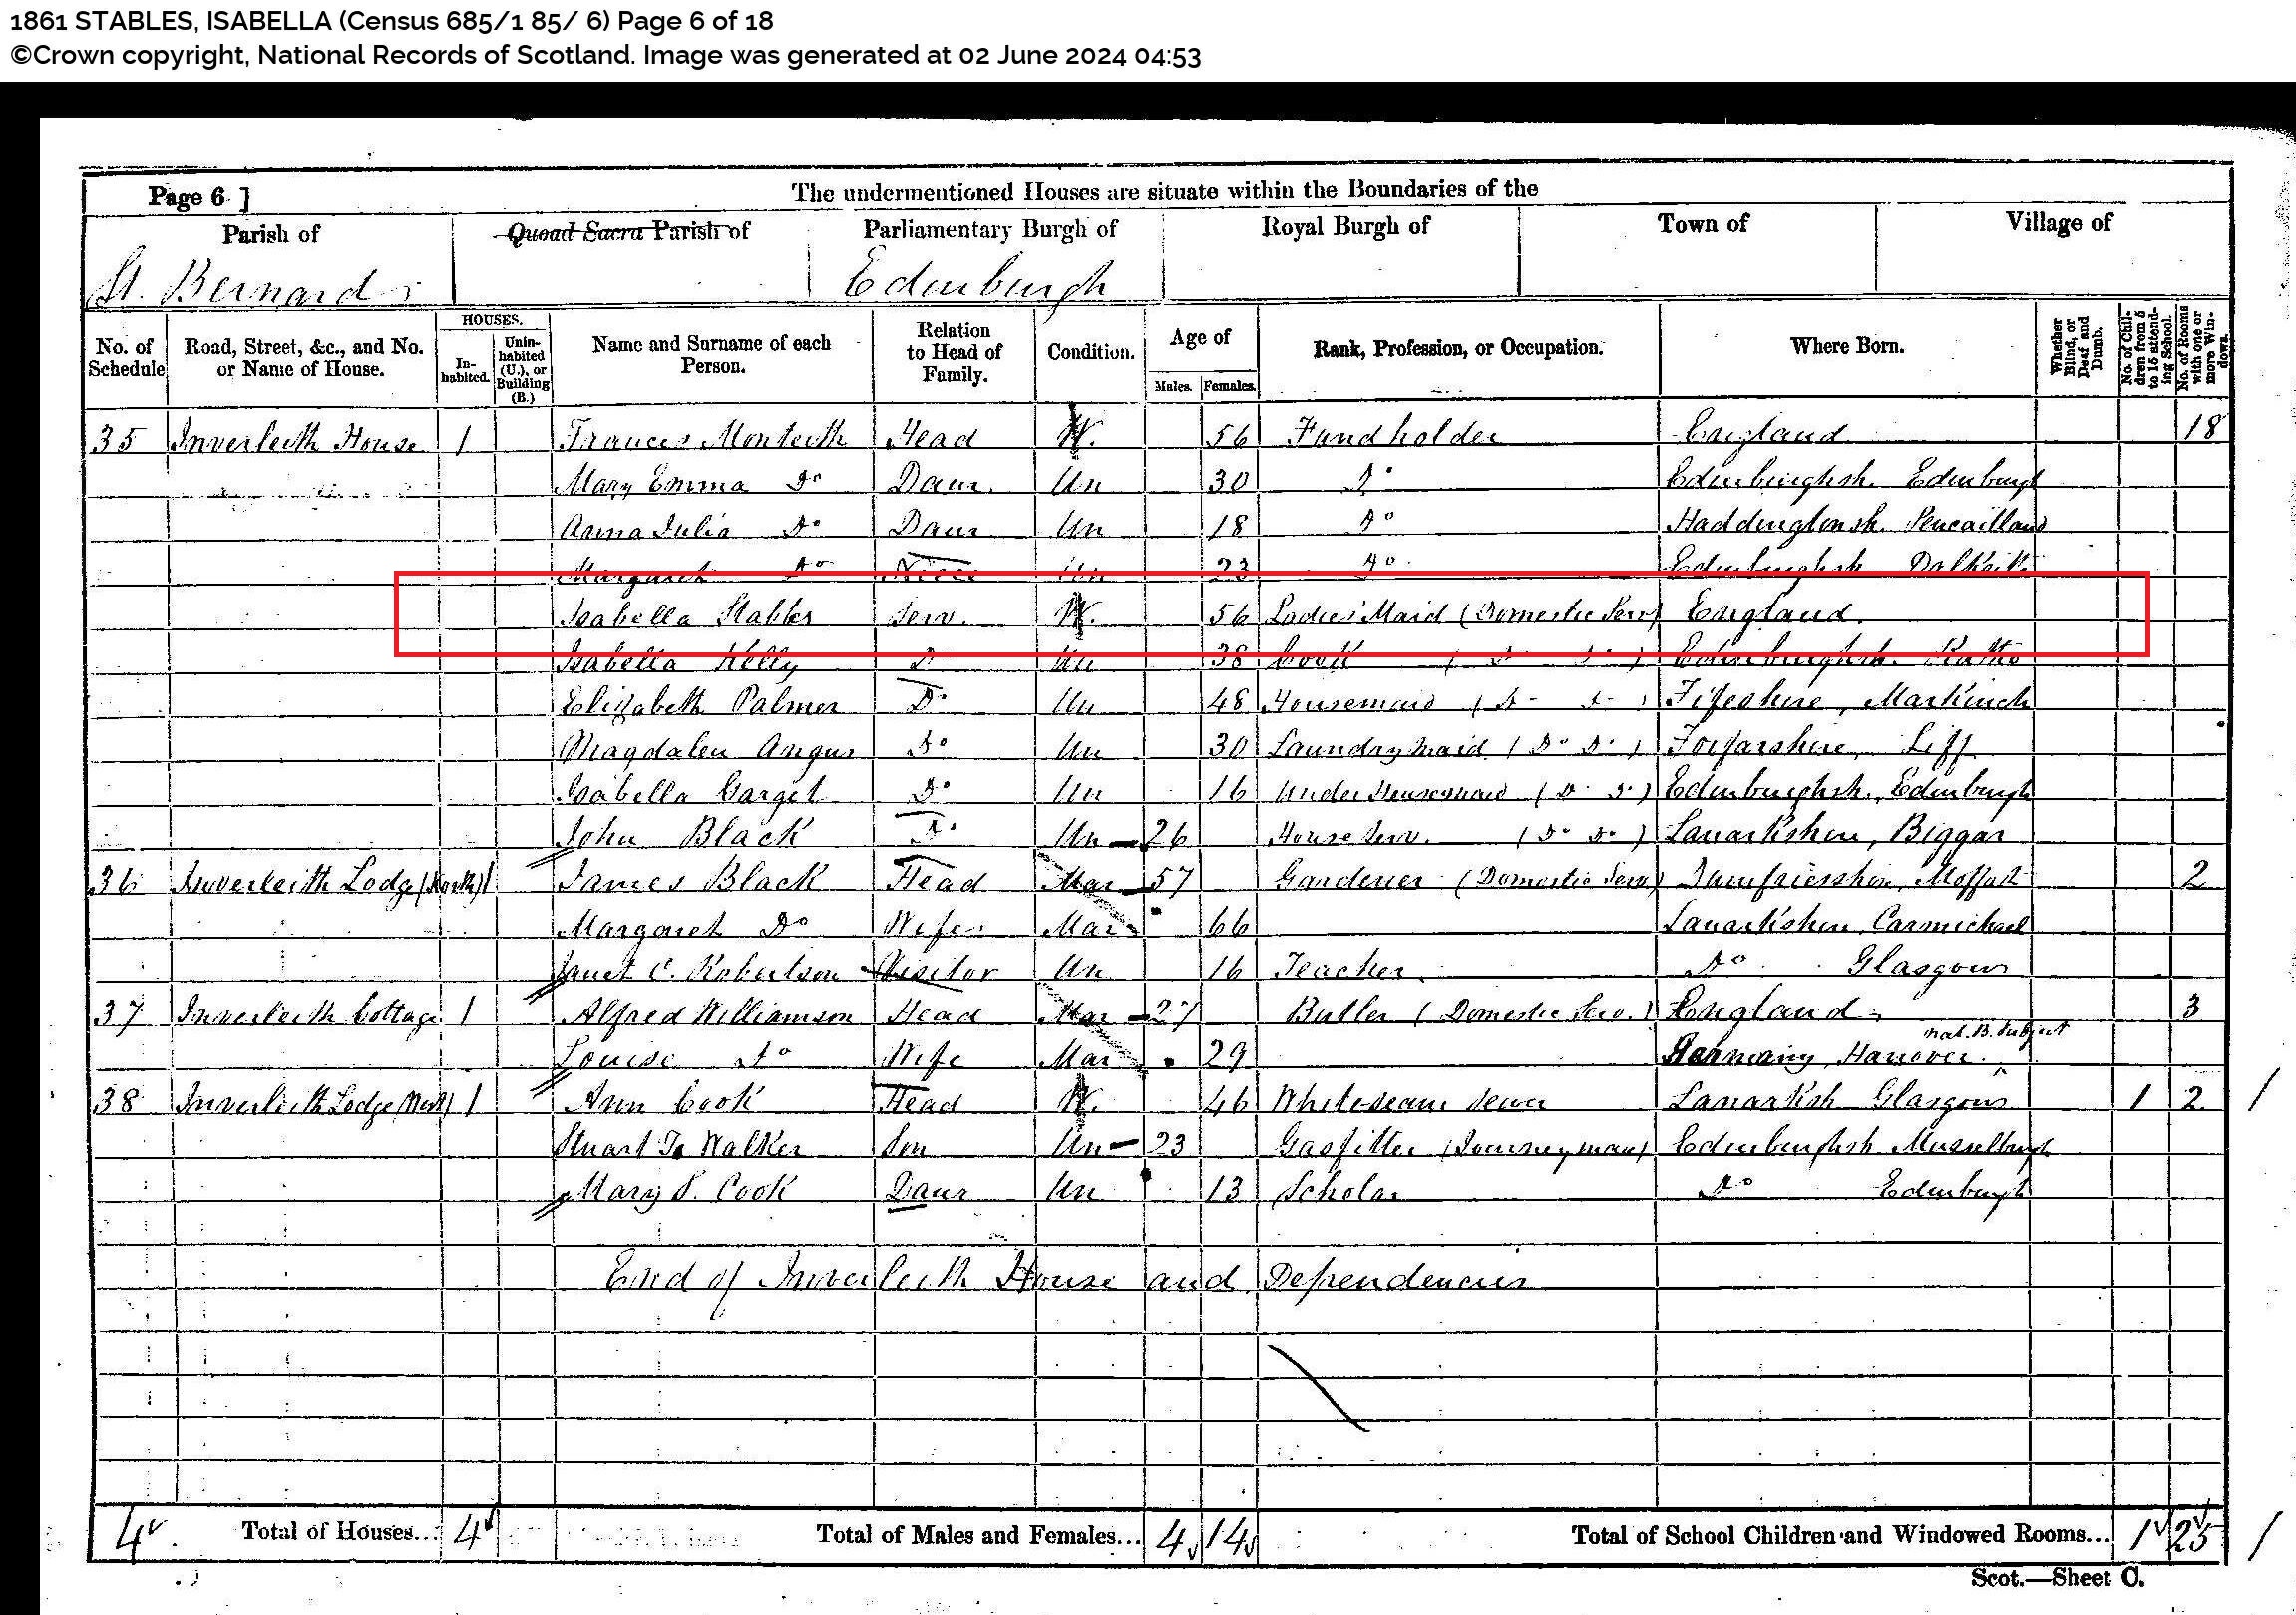 1861 STABLES, ISABELLA (Census 685/1 85/ 6) Page 6 of 18
©Crown copyright, National Records of Scotland. Image was generated at 02 June 2024 04:53
Page 6 ]
The undermentioned Houses are situate within the Boundaries of the
Parish of Quoad Sacra Parish of Parliamentary Burgh of Royal Burgh of Town of Village of
St. Bernards Edinburgh
No. of Schedule Road, Street, &c., and No. or Name of House. HOUSES. In-habited. Unin-habited (U.), or Building (B.) Name and Surname of each Person. Relation to Head of Family. Condition. Age of Males. Females. Rank, Profession, or Occupation. Where Born. Whether Blind, or Deaf and Dumb. No. of Chil-dren from 5 to 15 attend-ing School. No. of Rooms with one or more Win-dows.
35 Inverleith House 1 Frances Monteith Head W. 56 Fundholder England 18
Mary Emma Do Daur. Un 30 Do Edinburghsh. Edinburgh
Anna Julia Do Daur Un 18 Do Haddingtonsh. Pencaitland
Margaret Do Niece Un 23 Do Edinburghsh Dalkeith
Isabella Stables Serv. W. 56 Ladies' Maid (Domestic Serv) England.
Isabella Kelly Do Un 38 Cook (Do Do) Edinburghsh. Ratho
Elizabeth Palmer Do Un 48 Housemaid (Do Do) Fifeshire, Markinch
Magdalen Angus Do Un 30 Laundrymaid (Do Do) Forfarshire, Liff
Isabella Garget Do Un 16 Under Housemaid (Do Do) Edinburghsh., Edinburgh
John Black Do Un 26 House Serv. (Do Do) Lanarkshire, Biggar
36 Inverleith Lodge (North) 1 James Black Head Mar 57 Gardener (Domestic Serv) Dumfriesshire, Moffat 2
Margaret Do Wife Mar 66 Lanarkshire, Carmichael
Janet C. Robertson Visitor Un 16 Teacher Do Glasgow
37 Inverleith Cottage 1 Alfred Williamson Head Mar 27 Butler (Domestic Serv.) England 3
Louise Do Wife Mar 29 Germany, Hanover. nat. B. Subject
38 Inverleith Lodge (West) 1 Ann Cook Head W. 46 White-seam Sewer Lanarksh Glasgow 1 2
Stuart Walker Son Un 23 Gasfitter (Journeyman) Edinburghsh Musselburgh
Mary S. Cook Daur Un 13 Scholar Do Edinburgh
End of Inverleith House and Dependencies
4 Total of Houses... 4 Total of Males and Females... 4 14 Total of School Children and Windowed Rooms... 1 25
Scot.—Sheet C.